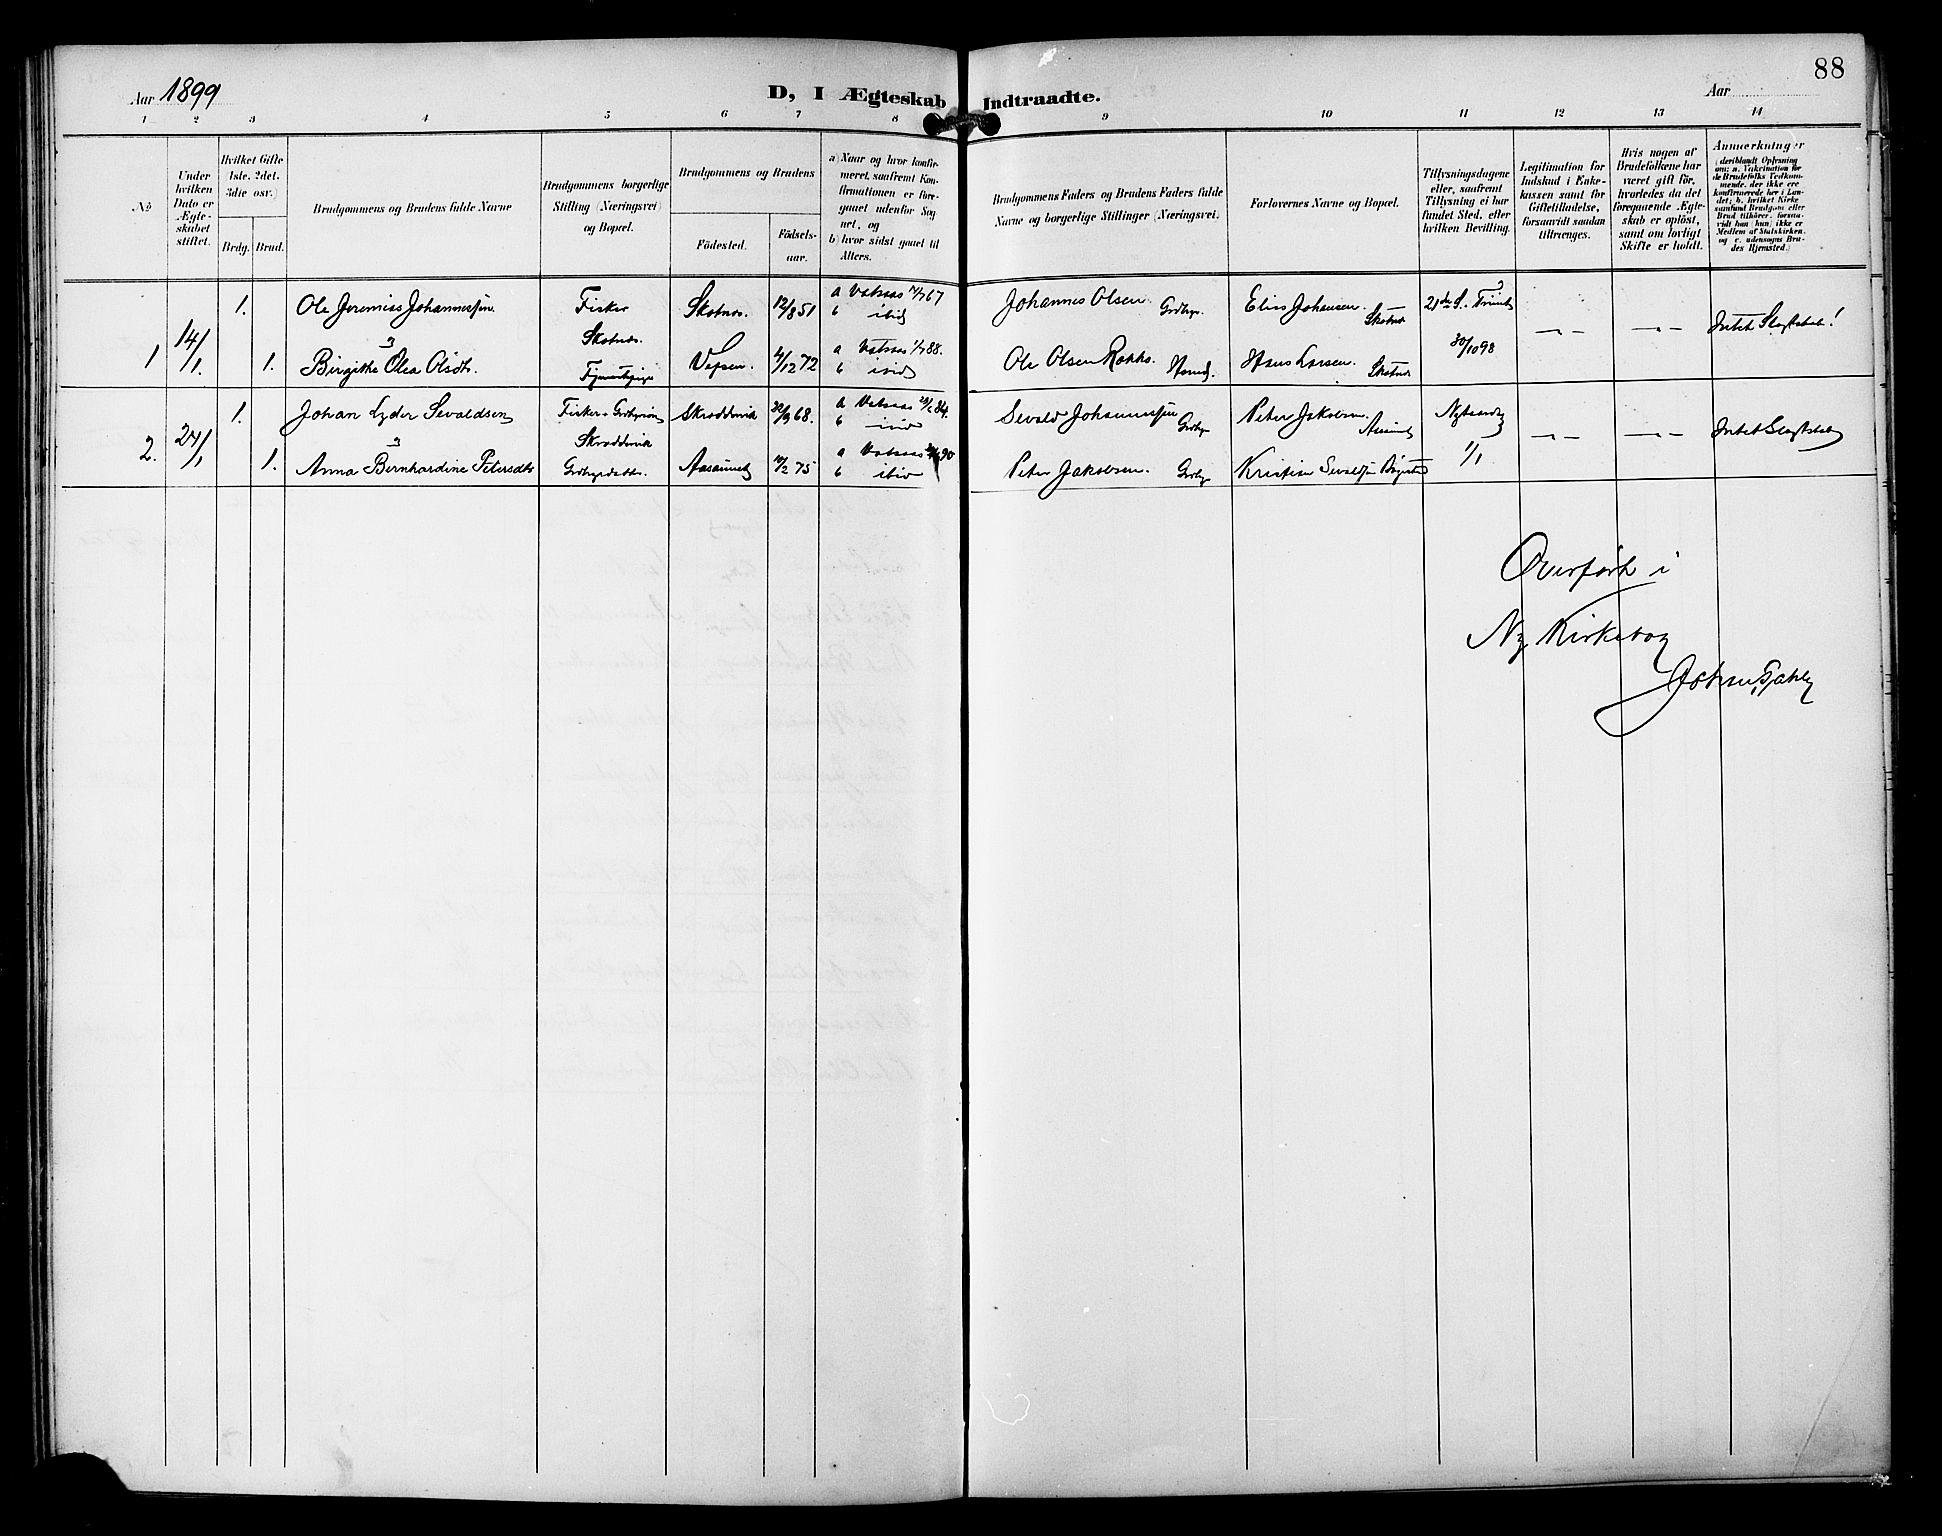 88
Aar 1899
D, I Ægteskab Indtraadte.
Aar
1 2 3 4 5 6 7 8 9 10 11 12 13 14
No
Under hvilken Dato er Ægteskabet stiftet.
Hvilket Gifte 1ste. 2det. 3die osv.
Brdg. Brud.
Brudgommens og Brudens fulde Navne
Brudgommens borgerlige Stilling (Næringsvei) og Bopæl.
Brudgommens og Brudens
Födested.
Födselsaar.
a) Naar og hvor konfirmeret, saafremt Konfirmationen er foregaaet udenfor Sognet, og
b) hvor sidst gaaet til Alters.
Brudgommens Faders og Brudens Faders fulde Navne og borgerlige Stillinger (Næringsvei.
Forlovernes Navne og Bopæl.
Tillysningsdagene eller, saafremt Tillysning ei har fundet Sted, efter hvilken Bevilling.
Legitimation for Indskud i Enkekassen samt for Giftetilladelse, forsaavidt saadan tiltrænges.
Hvis nogen af Brudefolkene har været gift för, hvorledes da det foregaaende Ægteskab er oplöst, samt om lovligt Skifte er holdt.
Anmærkninger
(deriblandt Oplysning om: a. Vakcination for de Brudefolks Vedkommende, der ikke ere konfirmerede her i Landet; b. hvilket Kirkesamfund Brudgom eller Brud tilhörer, forsaavidt han (hun) ikke er Medlem af Statskirken, og c. udensogns Brudes Hjemsted.)
1 14/1. 1. Ole Jeremias Johannessen Fisker Skotnes. Skotnes. 12/8 51 a Vatsaas 67 b ibid Johannes Olsen Grdbgr. Elias Johansen Skotnes 21de S. Trinit. 30/10 98 Intet Slegtskab!
1. Birgithe Olea Olsdtr. Vefsen. 4/12 72 a Vatsaas 1/7 88. b ibid Ole Olsen Hans Larsen Skotnes
2. 24/1 1. Johan Lyder Sevaldsen Fisker Skroddevik Skroddevik 68. a Vatsaas 84. b ibid Sevald Johannessen Grdbgr Peter Jakobsen Aasaunet Nytaarsdg 1/1 Intet Slegtskab
1. Anna Bernhardine Petersdtr Aasaunet 10/2 75 a Vatsaas 90 b ibid Peter Jakobsen. Grdbgr Kristian
Overført i
Ny Kirkebog